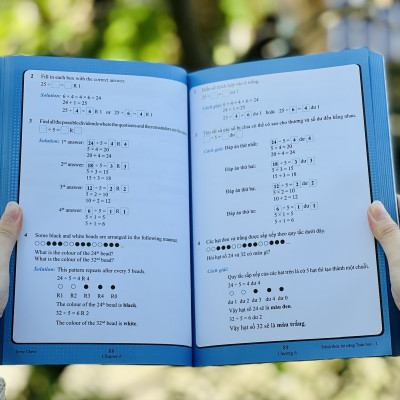 2 Fill in each box with the correct answer.
25 ÷ □ = □ R 1
Solution: 6 × 4 = 4 × 6 = 24
24 + 1 = 25
25 ÷ 4 = 6 R 1 or 25 ÷ 6 = 4 R 1
3 Find all the possible dividends when the quotients and the remainders are the same.
□ ÷ 5 = □ R □
Solution: 1st answer: 24 ÷ 5 = 4 R 4
5 × 4 = 20
20 + 4 = 24
2nd answer: 18 ÷ 5 = 3 R 3
5 × 3 = 15
15 + 3 = 18
3rd answer: 12 ÷ 5 = 2 R 2
5 × 2 = 10
10 + 2 = 12
4th answer: 6 ÷ 5 = 1 R 1
5 × 1 = 5
5 + 1 = 6
4 Some black and white beads are arranged in the following manner.
What is the colour of the 24th bead?
What is the colour of the 32nd bead?
Solution: This pattern repeats after every 5 beads.
24 ÷ 5 = 4 R 4
R1 R2 R3 R4 R0
The colour of the 24th bead is black.
32 ÷ 5 = 6 R 2
The colour of the 32nd bead is white.
88
Chapter 6
2 Điền số thích hợp vào ô trống.
25 ÷ □ = □ dư 1
Cách giải: 6 × 4 = 4 × 6 = 24
24 + 1 = 25
25 ÷ 4 = 6 dư 1 hoặc 25 ÷ 6 = 4 dư 1
Cách giải: Đáp án thứ nhất: 24 ÷ 5 = 4 dư 4
5 × 4 = 20
20 + 4 = 24
Đáp án thứ hai: 18 ÷ 5 = 3 dư 3
5 × 3 = 15
15 + 3 = 18
Đáp án thứ ba: 12 ÷ 5 = 2 dư 2
5 × 2 = 10
10 + 2 = 12
Đáp án thứ tư: 6 ÷ 5 = 1 dư 1
5 × 1 = 5
5 + 1 = 6
4 Các hạt đen và trắng được sắp xếp theo quy tắc dưới đây.
Hỏi hạt số 24 và 32 có màu gì?
Cách giải:
Quy tắc sắp xếp của các hạt trên là cứ 5 hạt thì tạo thành một chuỗi.
24 ÷ 5 = 4 dư 4
dư 1 dư 2 dư 3 dư 4 dư 0
Vậy hạt số 24 sẽ là màu đen.
32 ÷ 5 = 6 dư 2
Vậy hạt số 32 sẽ là màu trắng.
Chương 6